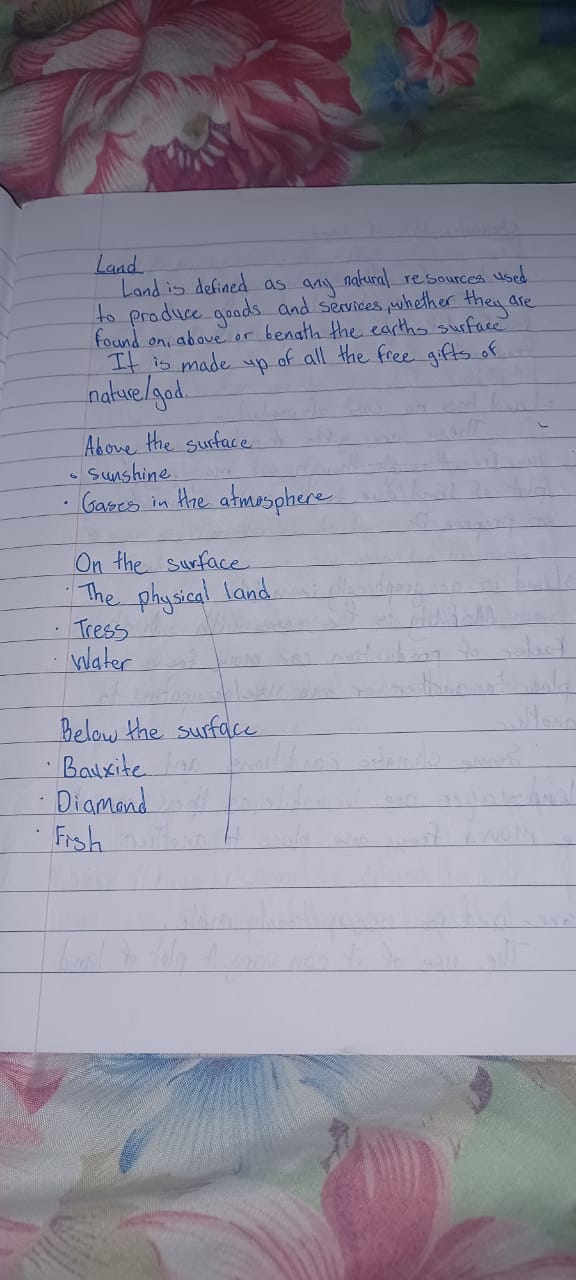 Land
Land is defined as any natural resources used
to produce goods and services, whether they are
found on, above or benath the earths surface
It is made up of all the free gifts of
nature/god.
Above the surface
• Sunshine
• Gases in the atmosphere
On the surface
• The physical land
• Tress
• Water
Below the surface
• Bauxite
• Diamond
• Fish